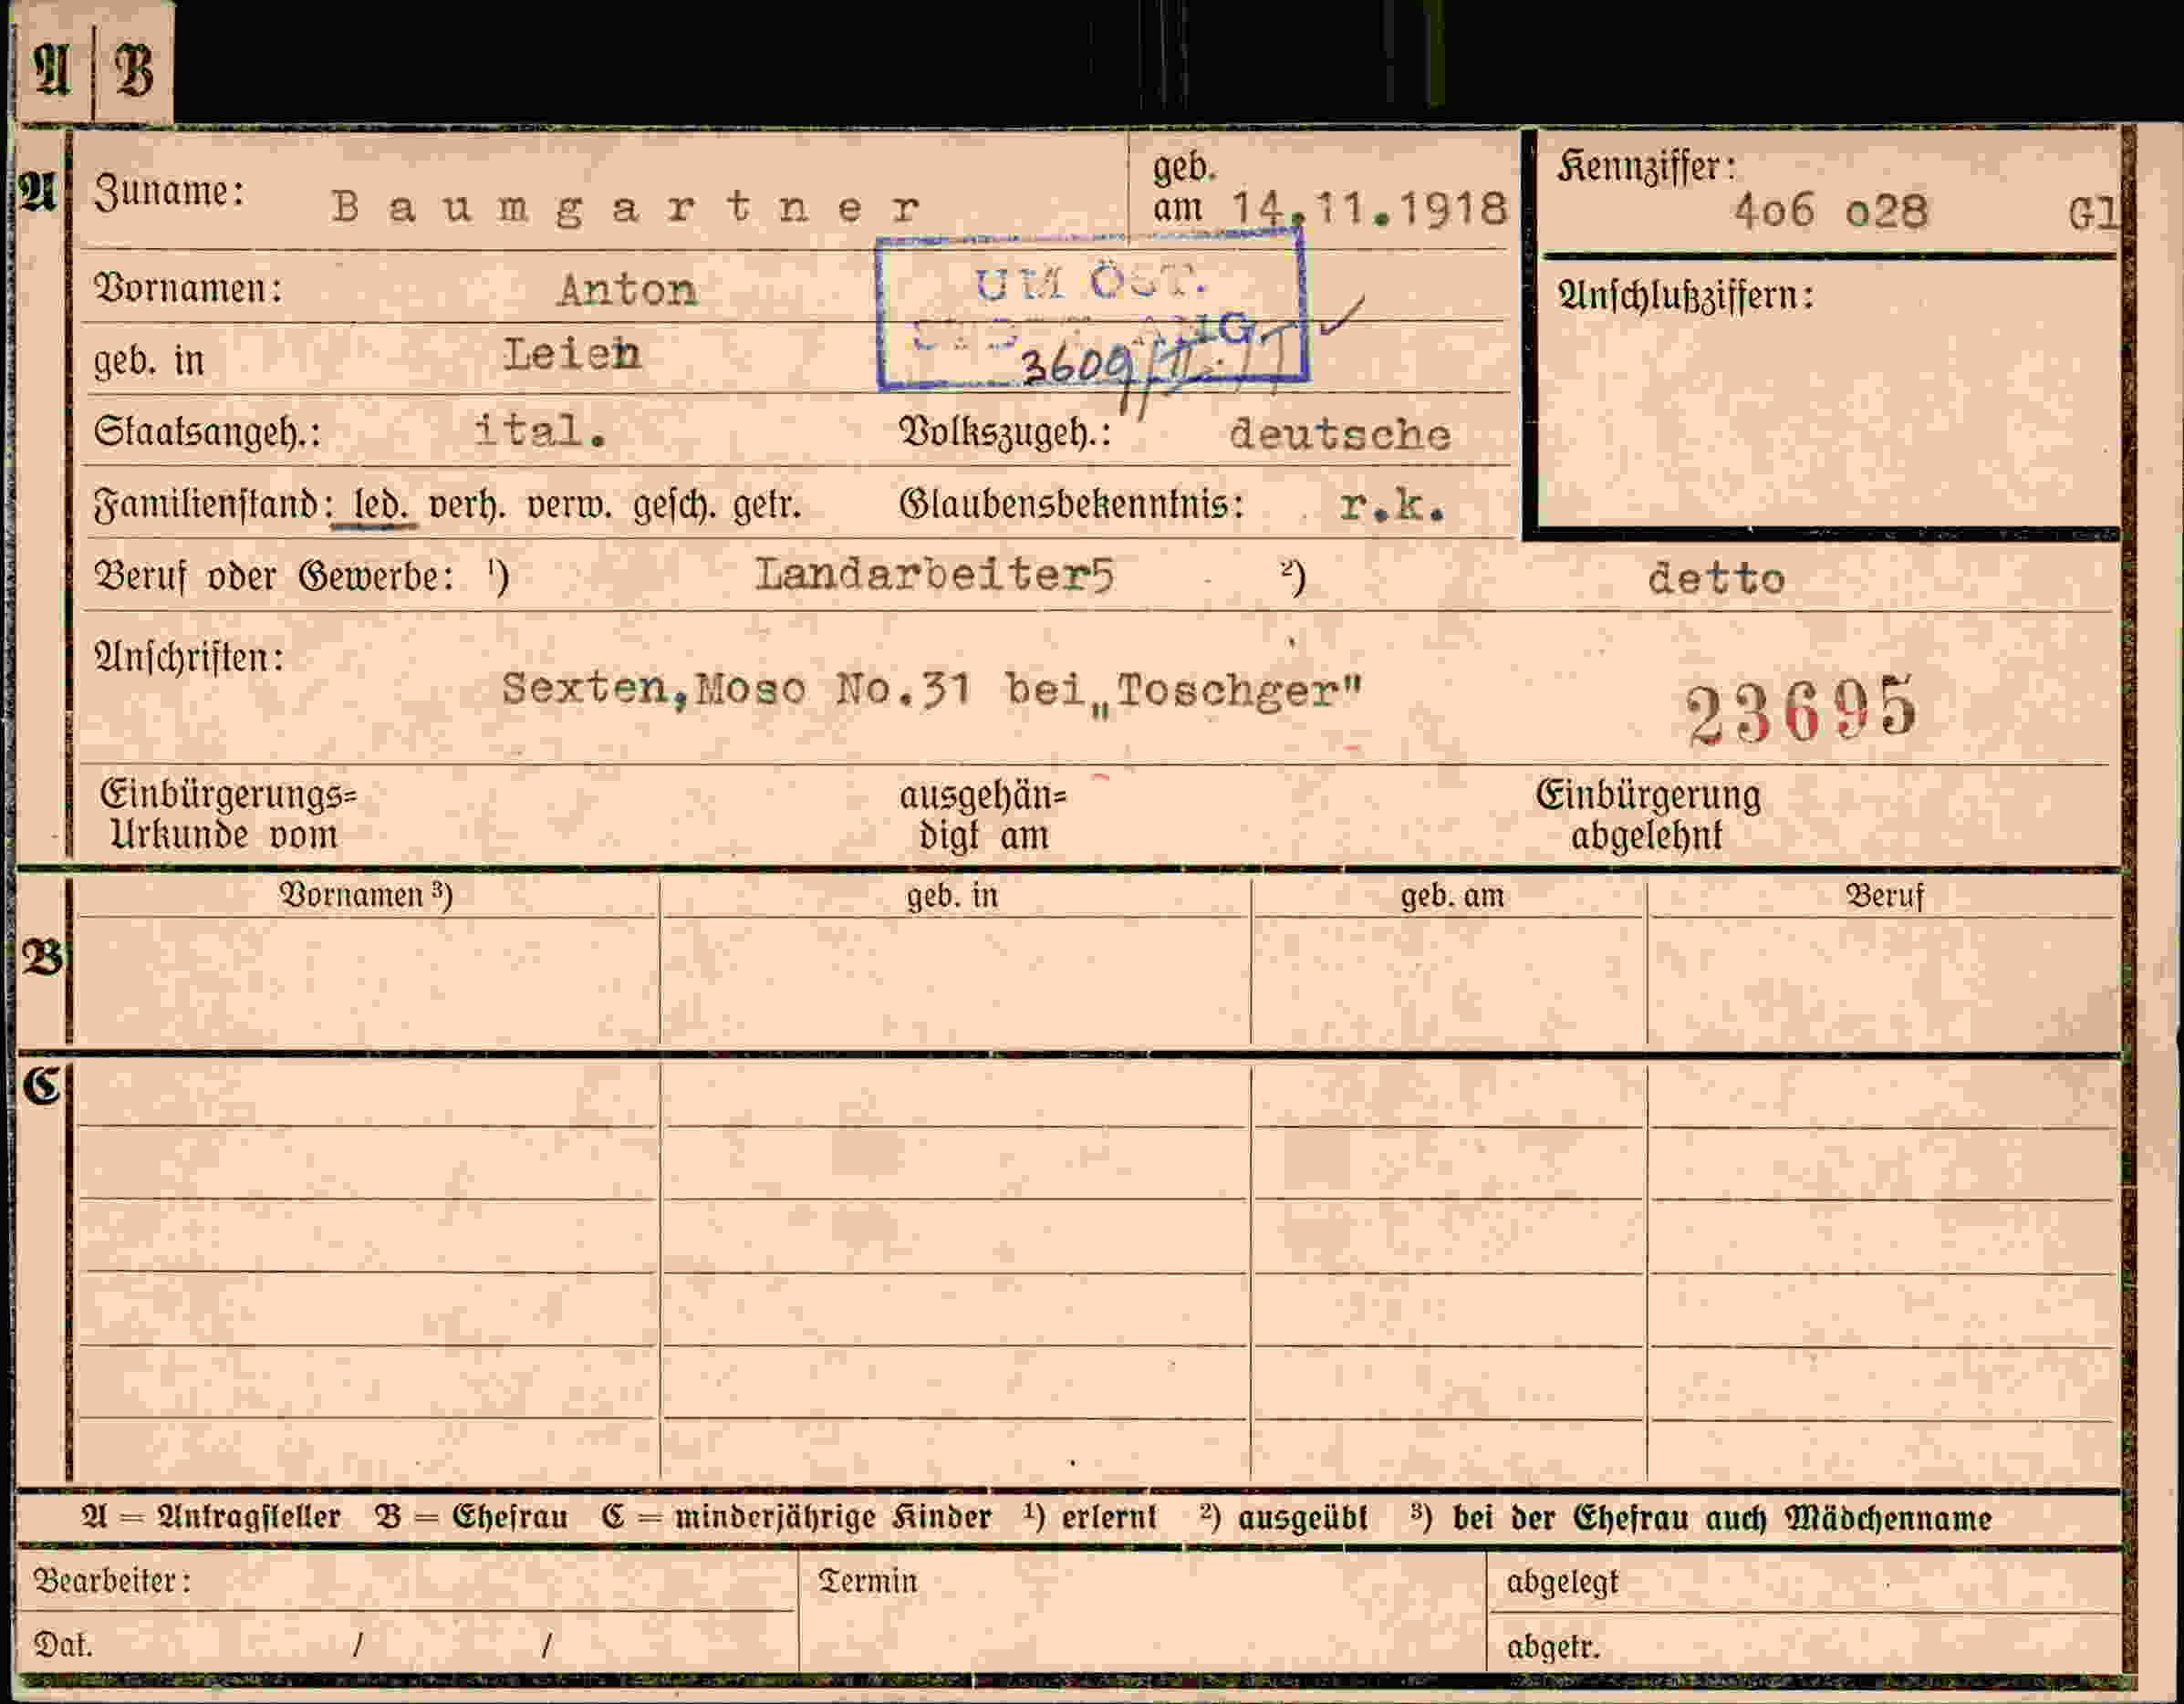 A | B
A Zuname: Baumgartner geb. am 14.11.1918 Kennziffer: 4o6 o28 Gl
Vornamen: Anton UM ÖST. Anschlußziffern:
geb. in 3609/II.
Staatsangeh.: ital. Volkszugeh.: deutsche
Familienstand: led. verh. verw. gesch. getr. Glaubensbekenntnis: r.k.
Beruf oder Gewerbe: ¹) Landarbeiter5 ²) detto
Anschriften:
Sexten,Moso No.31 bei„Toschger"
23695
Einbürgerungs= Urkunde vom ausgehän= digt am Einbürgerung abgelehnt
Vornamen ³) geb. in geb. am Beruf
B
C
A = Antragsteller B = Ehefrau C = minderjährige Kinder ¹) erlernt ²) ausgeübt ³) bei der Ehefrau auch Mädchenname
Bearbeiter: Termin abgelegt
Dat. / / abgetr.